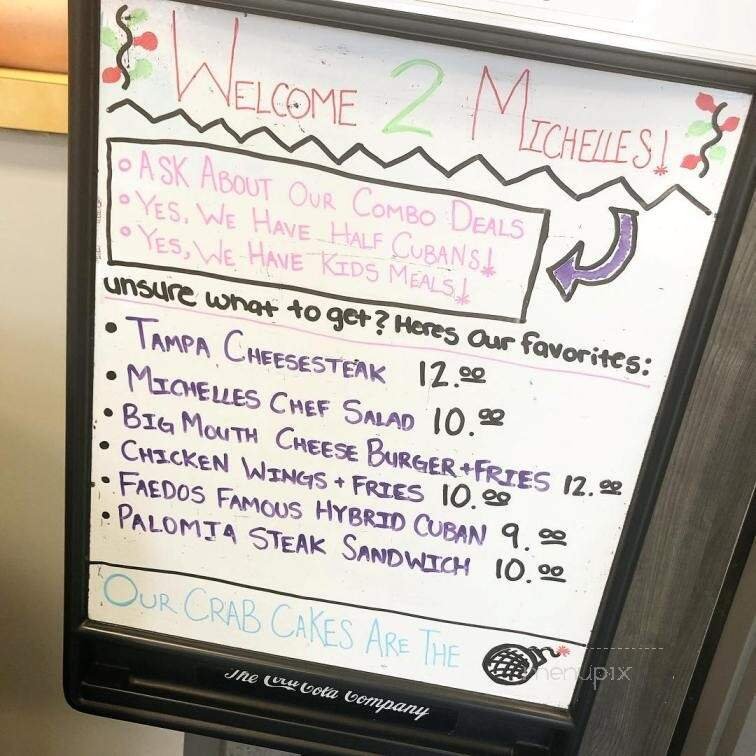 WELCOME 2 MICHELLES!
• ASK ABOUT OUR COMBO DEALS
• YES, WE HAVE HALF CUBANS!
• YES, WE HAVE KIDS MEALS!
unsure what to get? Heres our favorites:
• TAMPA CHEESESTEAK 12.00
• MICHELLES CHEF SALAD 10.00
• BIG MOUTH CHEESE BURGER + FRIES 12.00
• CHICKEN WINGS + FRIES 10.00
• FAEDOS FAMOUS HYBRID CUBAN 9.00
• PALOMIA STEAK SANDWICH 10.00
OUR CRAB CAKES ARE THE
menupix
The Coca-Cola Company